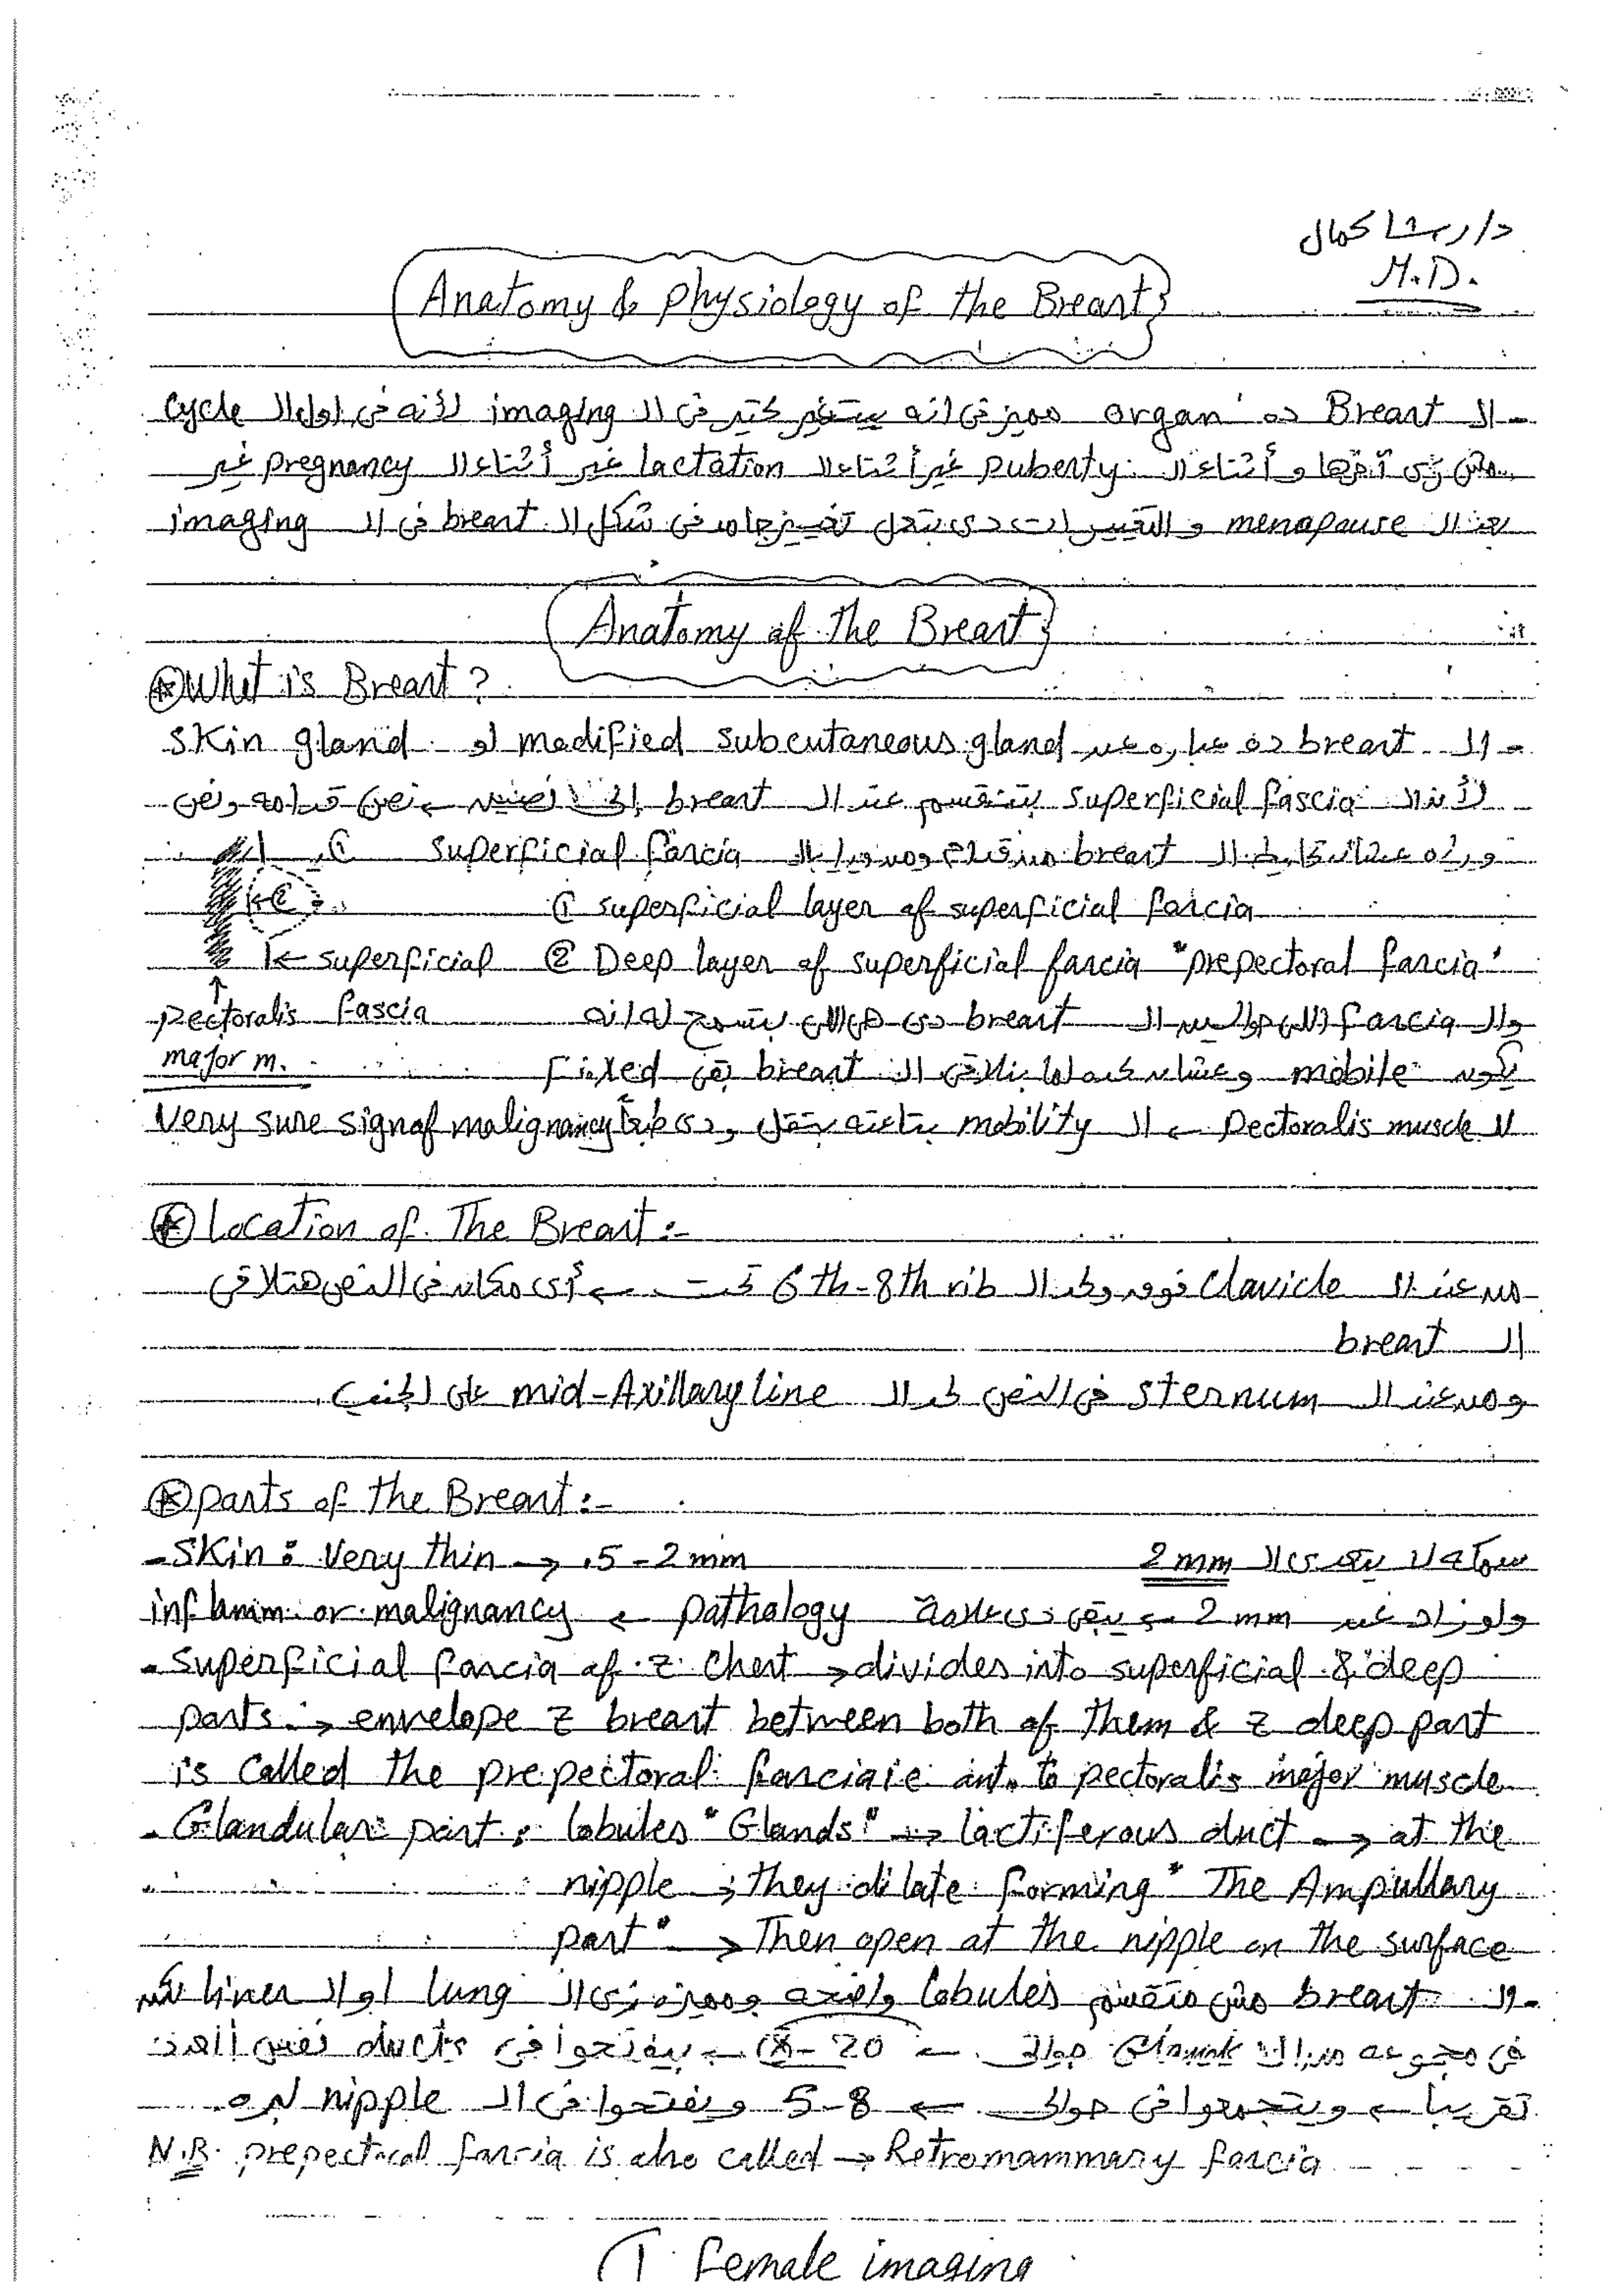 د/ رشا كمال
M.D.
Anatomy & physiology of the Breast
- الـ Breast ده organ مميز فى انه بيتغير كتير فى الـ imaging لأنه فى اول الـ cycle
مش زى آخرها و أثناء الـ puberty غير أثناء الـ lactation غير أثناء الـ pregnancy غير
بعد الـ menopause و التغييرات دى بتعمل تغيير جامد فى شكل الـ breast فى الـ imaging
Anatomy of the Breast
What is Breast?
- الـ breast ده عباره عن modified subcutaneous gland او skin gland
لأن الـ superficial fascia بتتقسم عند الـ breast إلى نصين ← نص قدامه ونص
وراه عشان تحيط الـ breast من قدام ومن ورا بالـ superficial fascia
① superficial layer of superficial fascia
② Deep layer of superficial fascia "prepectoral fascia"
← superficial
fascia
pectoralis
major m.
والـ fascia اللى حوالين الـ breast دى هى اللى بتسمح له انه
يكون mobile وعشان كده لما بنلاقى الـ breast بقى Fixed
للـ pectoralis muscle ← الـ mobility بتاعته بتقل ودى طبعاً very sure sign of malignancy
Location of The Breast :-
من عند الـ clavicle فوق ولحد الـ 6th-8th rib تحت ← أى مكان فى النص هنلاقى
الـ breast
ومن عند الـ sternum فى النص لحد الـ mid-Axillary line على الجنب.
parts of the Breast :-
- Skin : Very thin → .5 - 2 mm سمكه لا يتعدى الـ 2 mm
ولو زاد عن 2 mm ← يبقى دى علامة pathology ← inflamm. or malignancy
- Superficial fascia of z chest → divides into superficial & deep
parts → envelope z breast between both of them & z deep part
is called the prepectoral fascia ie ant. to pectoralis major muscle
- Glandular part : lobules "Glands" → lactiferous duct → at the
nipple → they dilate forming "The Ampullary
part" → Then open at the nipple on the surface
- الـ breast مش متقسم lobules واضحه ومميزه زى الـ lung او الـ liver لكن
فى مجموعه من الـ حوالى ← 20 - ← بيفتحوا فى ducts نفس العدد
تقريبا ← ويتجمعوا فى حوالى ← 5-8 ويفتحوا فى الـ nipple لبره.
N.B. prepectoral fascia is also called → Retromammary fascia
1 Female imaging